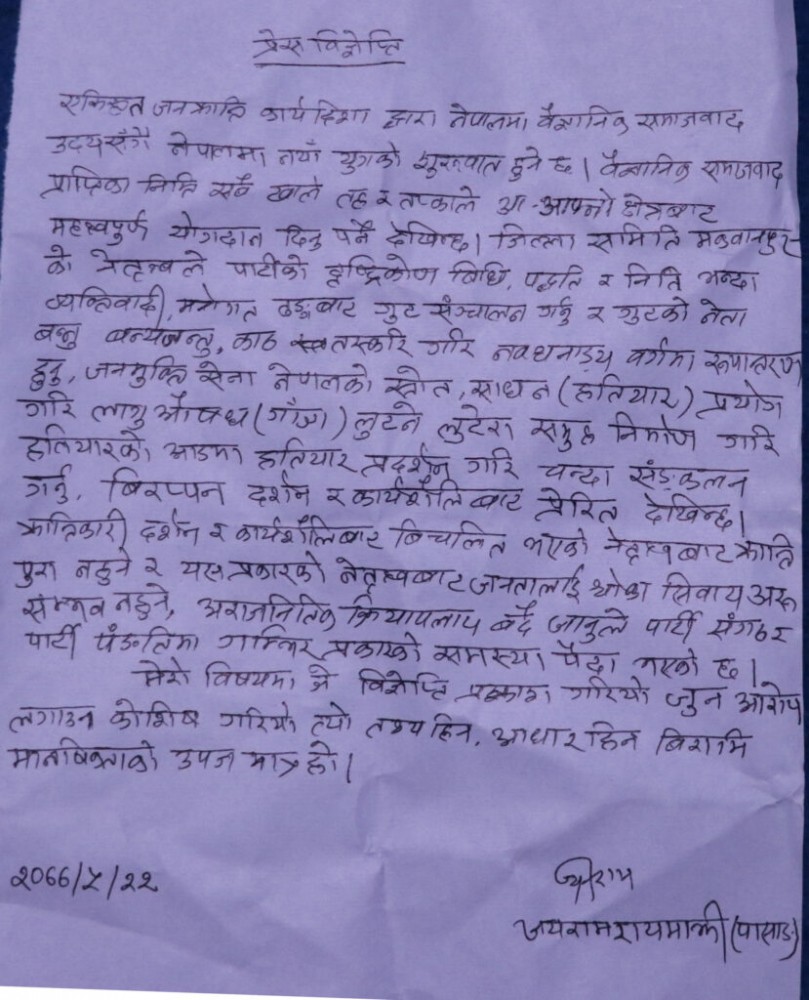 प्रेस विज्ञेप्ति
एकिकृत जनक्रान्ति कार्यदिशा द्वारा नेपालमा वैज्ञानिक समाजवाद
उदयसँगै नेपालमा नयाँ युगको शुरुवात हुने छ। वैज्ञानिक समाजवाद
प्राप्तिका निम्ति सबै खाले तह र तप्काले आ-आफ्नो क्षेत्रबाट
महत्वपुर्ण योगदान दिनु पर्ने देखिन्छ। जिल्ला समिति मकवानपुर
को नेतृत्वले पार्टीको दृष्टिकोण बिधि, पद्धति र निति भन्दा
व्यक्तिवादी, मनोगत ढङ्गबाट गुट संञ्चालन गर्नु र गुटको नेता
बन्नु बन्यजन्तु, काठ तस्करि गरि नवधनाड्य वर्गमा रूपान्तरण
हुनु, जनमुक्ति सेना नेपालको स्रोत, साधन (हतियार) प्रयोग
गरि लागु औषध (गाँजा) लुटने लुटेरा समुह निर्माण गरि
हतियारको आडमा हतियार प्रदर्शन गरि चन्दा संङ्कलन
गर्नु, बिरप्पन दर्शन र कार्यशैलिबाट प्रेरित देखिन्छ।
क्रान्तिकारी दर्शन र कार्यशैलिबाट बिचलित भएको नेतृत्वबाट क्रान्ति
पुरा नहुने र यस प्रकारको नेतृत्वबाट जनतालाई धोका सिवाय अरू
सम्भव नहुने, अराजनितिक क्रियापलाप बढ्दै जानुले पार्टी संगठन र
पार्टी पंङतिमा गाम्भिर प्रकारको समस्या पैदा भएको छ।
मेरो विषयमा जे विज्ञेप्ति प्रकाश गरियो जुन आरोप
लगाउन कोशिष गरियो त्यो तथ्यहिन, आधारहिन बिरामि
मानषिक्ताको उपज मात्र हो।
२०६६/५/२२
जयराम
जयराम रायमाझी (पासाङ)